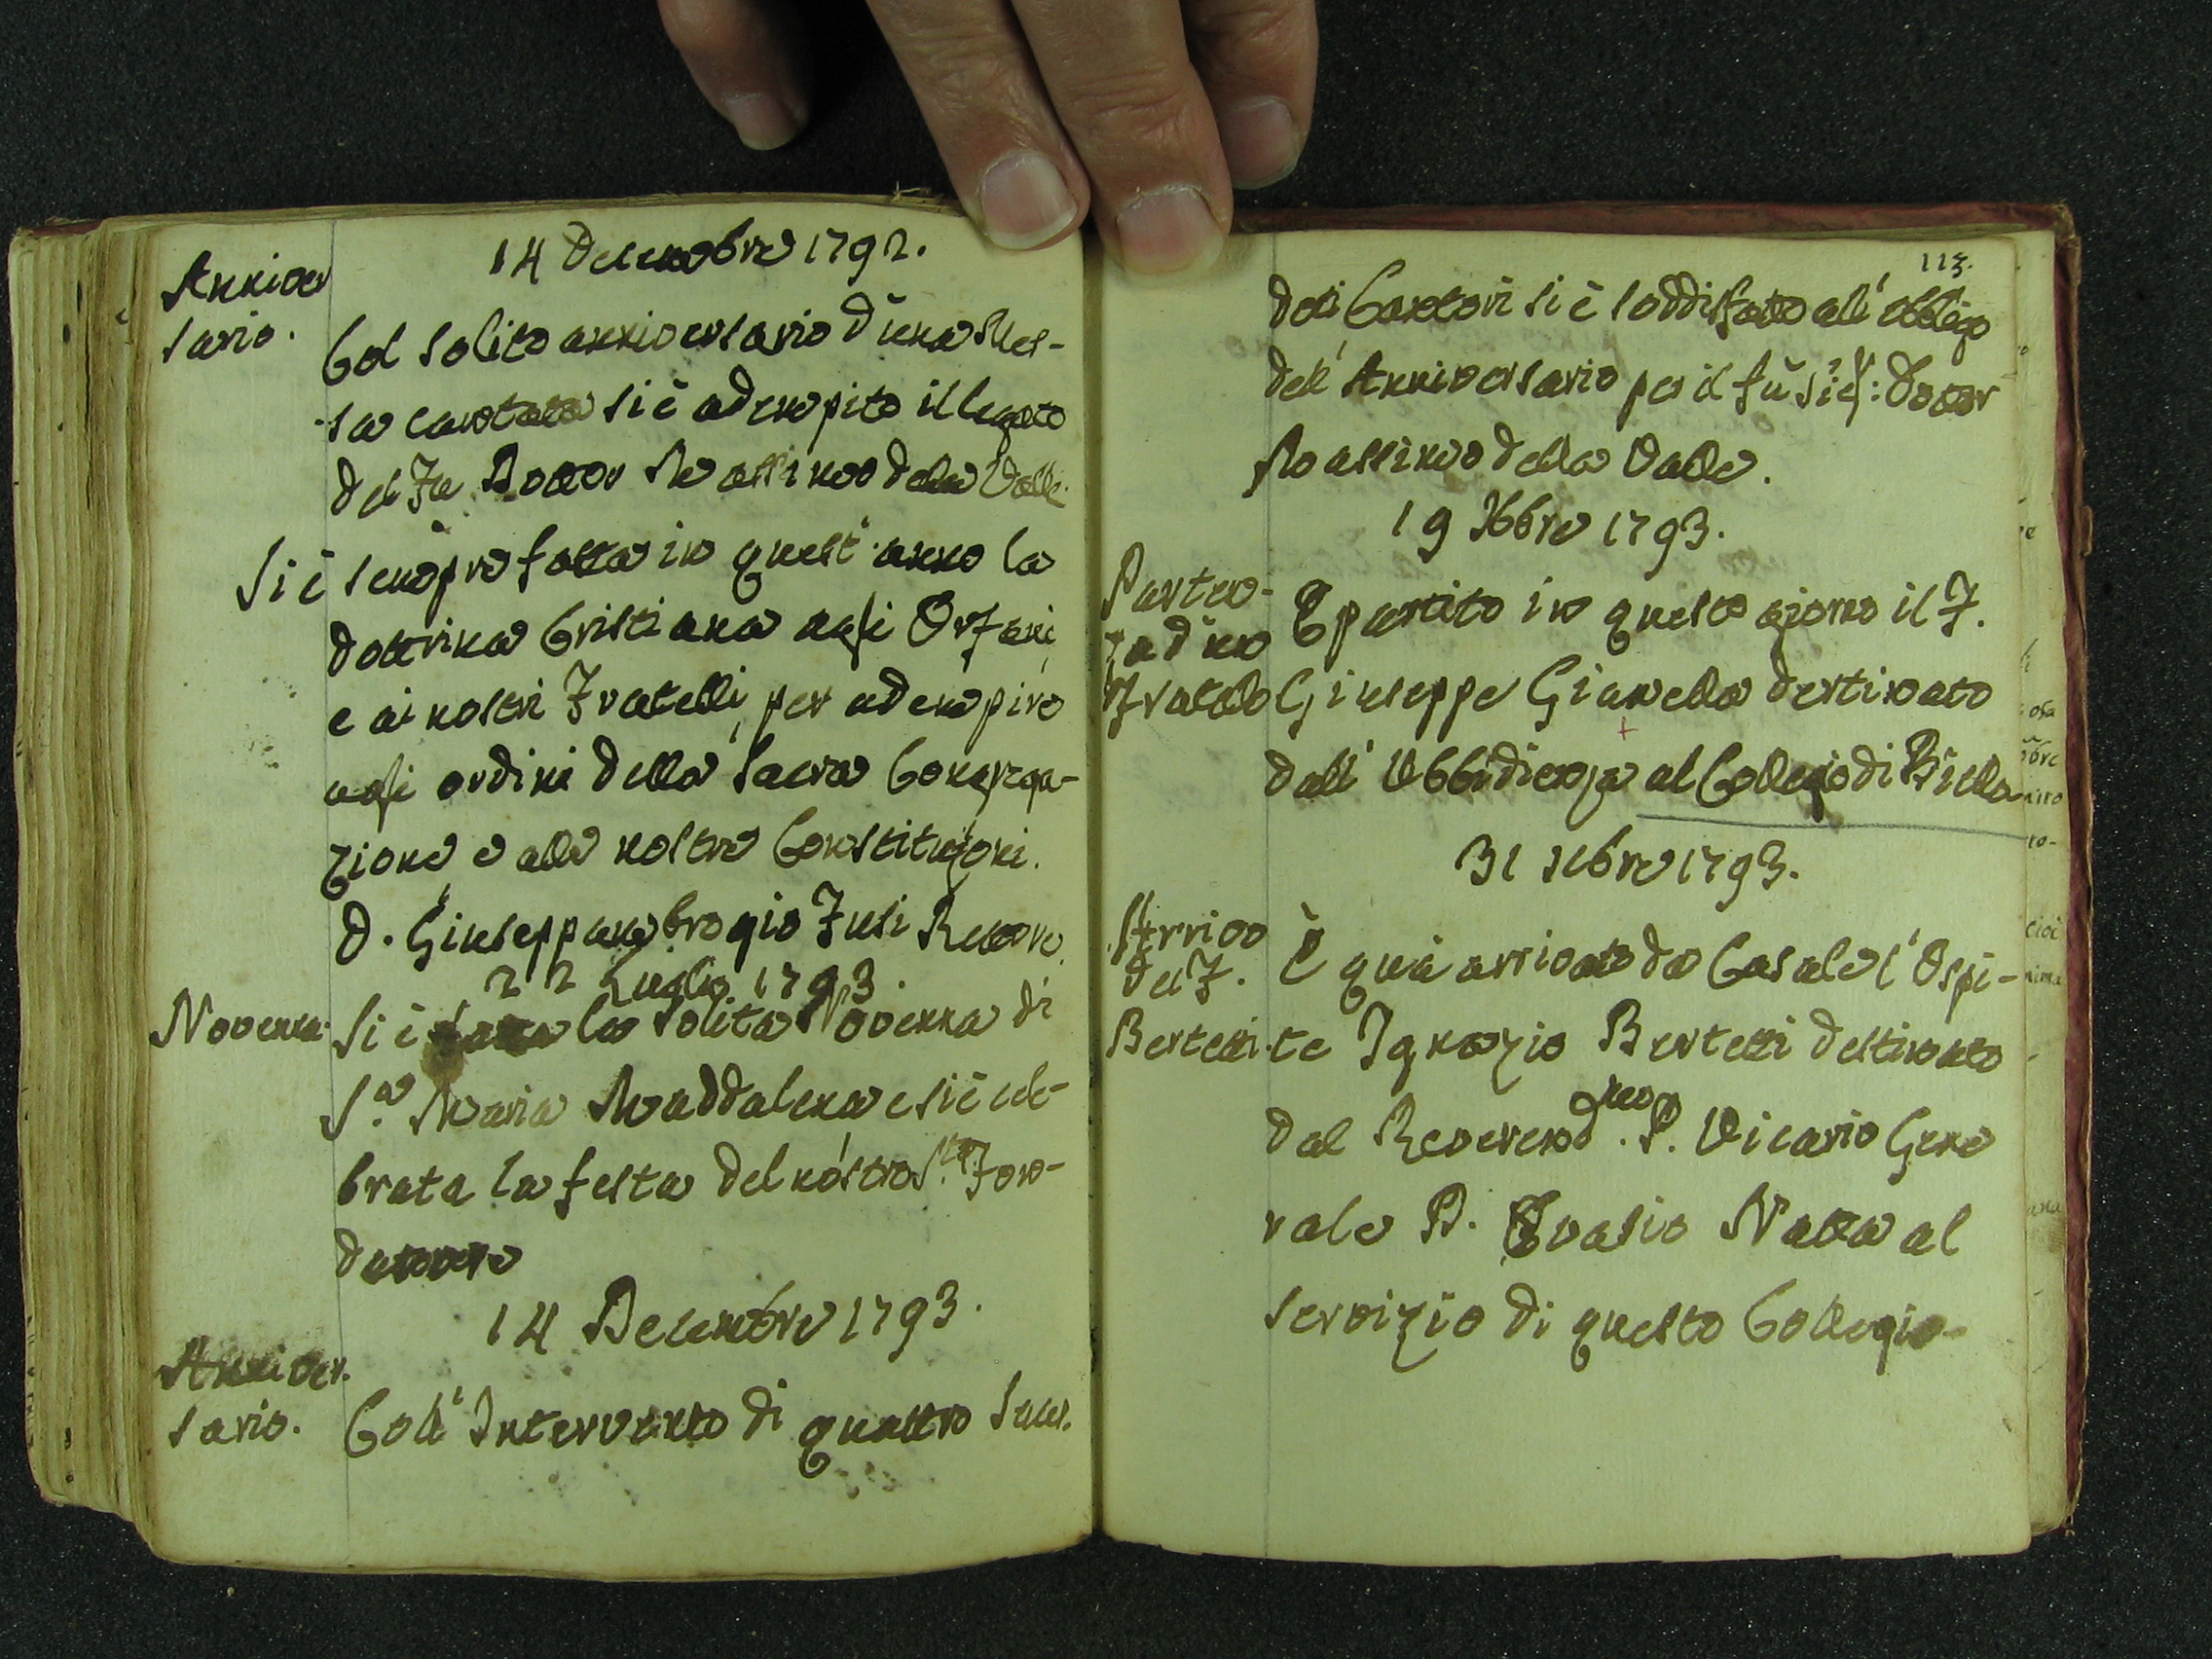 14 Decembre 1792.
Anniver
sario.
Col solito anniversario d'una Mes-
sa cantata si è adempito il legato
del Fu Dottor Massimo della Valle.
Si è sempre fatta in quest'anno la
dottrina Cristiana agli Orfani
e ai nostri Fratelli, per adempire
agli ordini della Sacra Congrega-
zione e alle nostre Constituzioni.
D. Giuseppambrogio Fusi Rettore
22 Luglio 1793.
Novenna.
Si è fatta la solita Novenna di
S.a Maria Maddalena e si è cele-
brata la festa del nostro S.to Fon-
datore
14 Decembre 1793.
Anniver.
sario.
Coll'Intervento di quattro Sacer.
113.
doti Cantori si è soddisfatto all'obbligo
dell'Anniversario per il fù Sig: Dottor
Massimo della Valle.
19 Xbre 1793.
Parten-
za d'un
Fratello
È partito in questo giorno il F.
Giuseppe Gianella destinato
dall'Ubbidienza al Collegio di Biella
31 Xbre 1793.
Arrivo
del F.
Bertetti.
È quà arrivato da Casale l'Ospi-
te Ignazio Bertetti destinato
dal Reverend.mo P. Vicario Gene
rale D. Evasio Natta al
servizio di questo Collegio